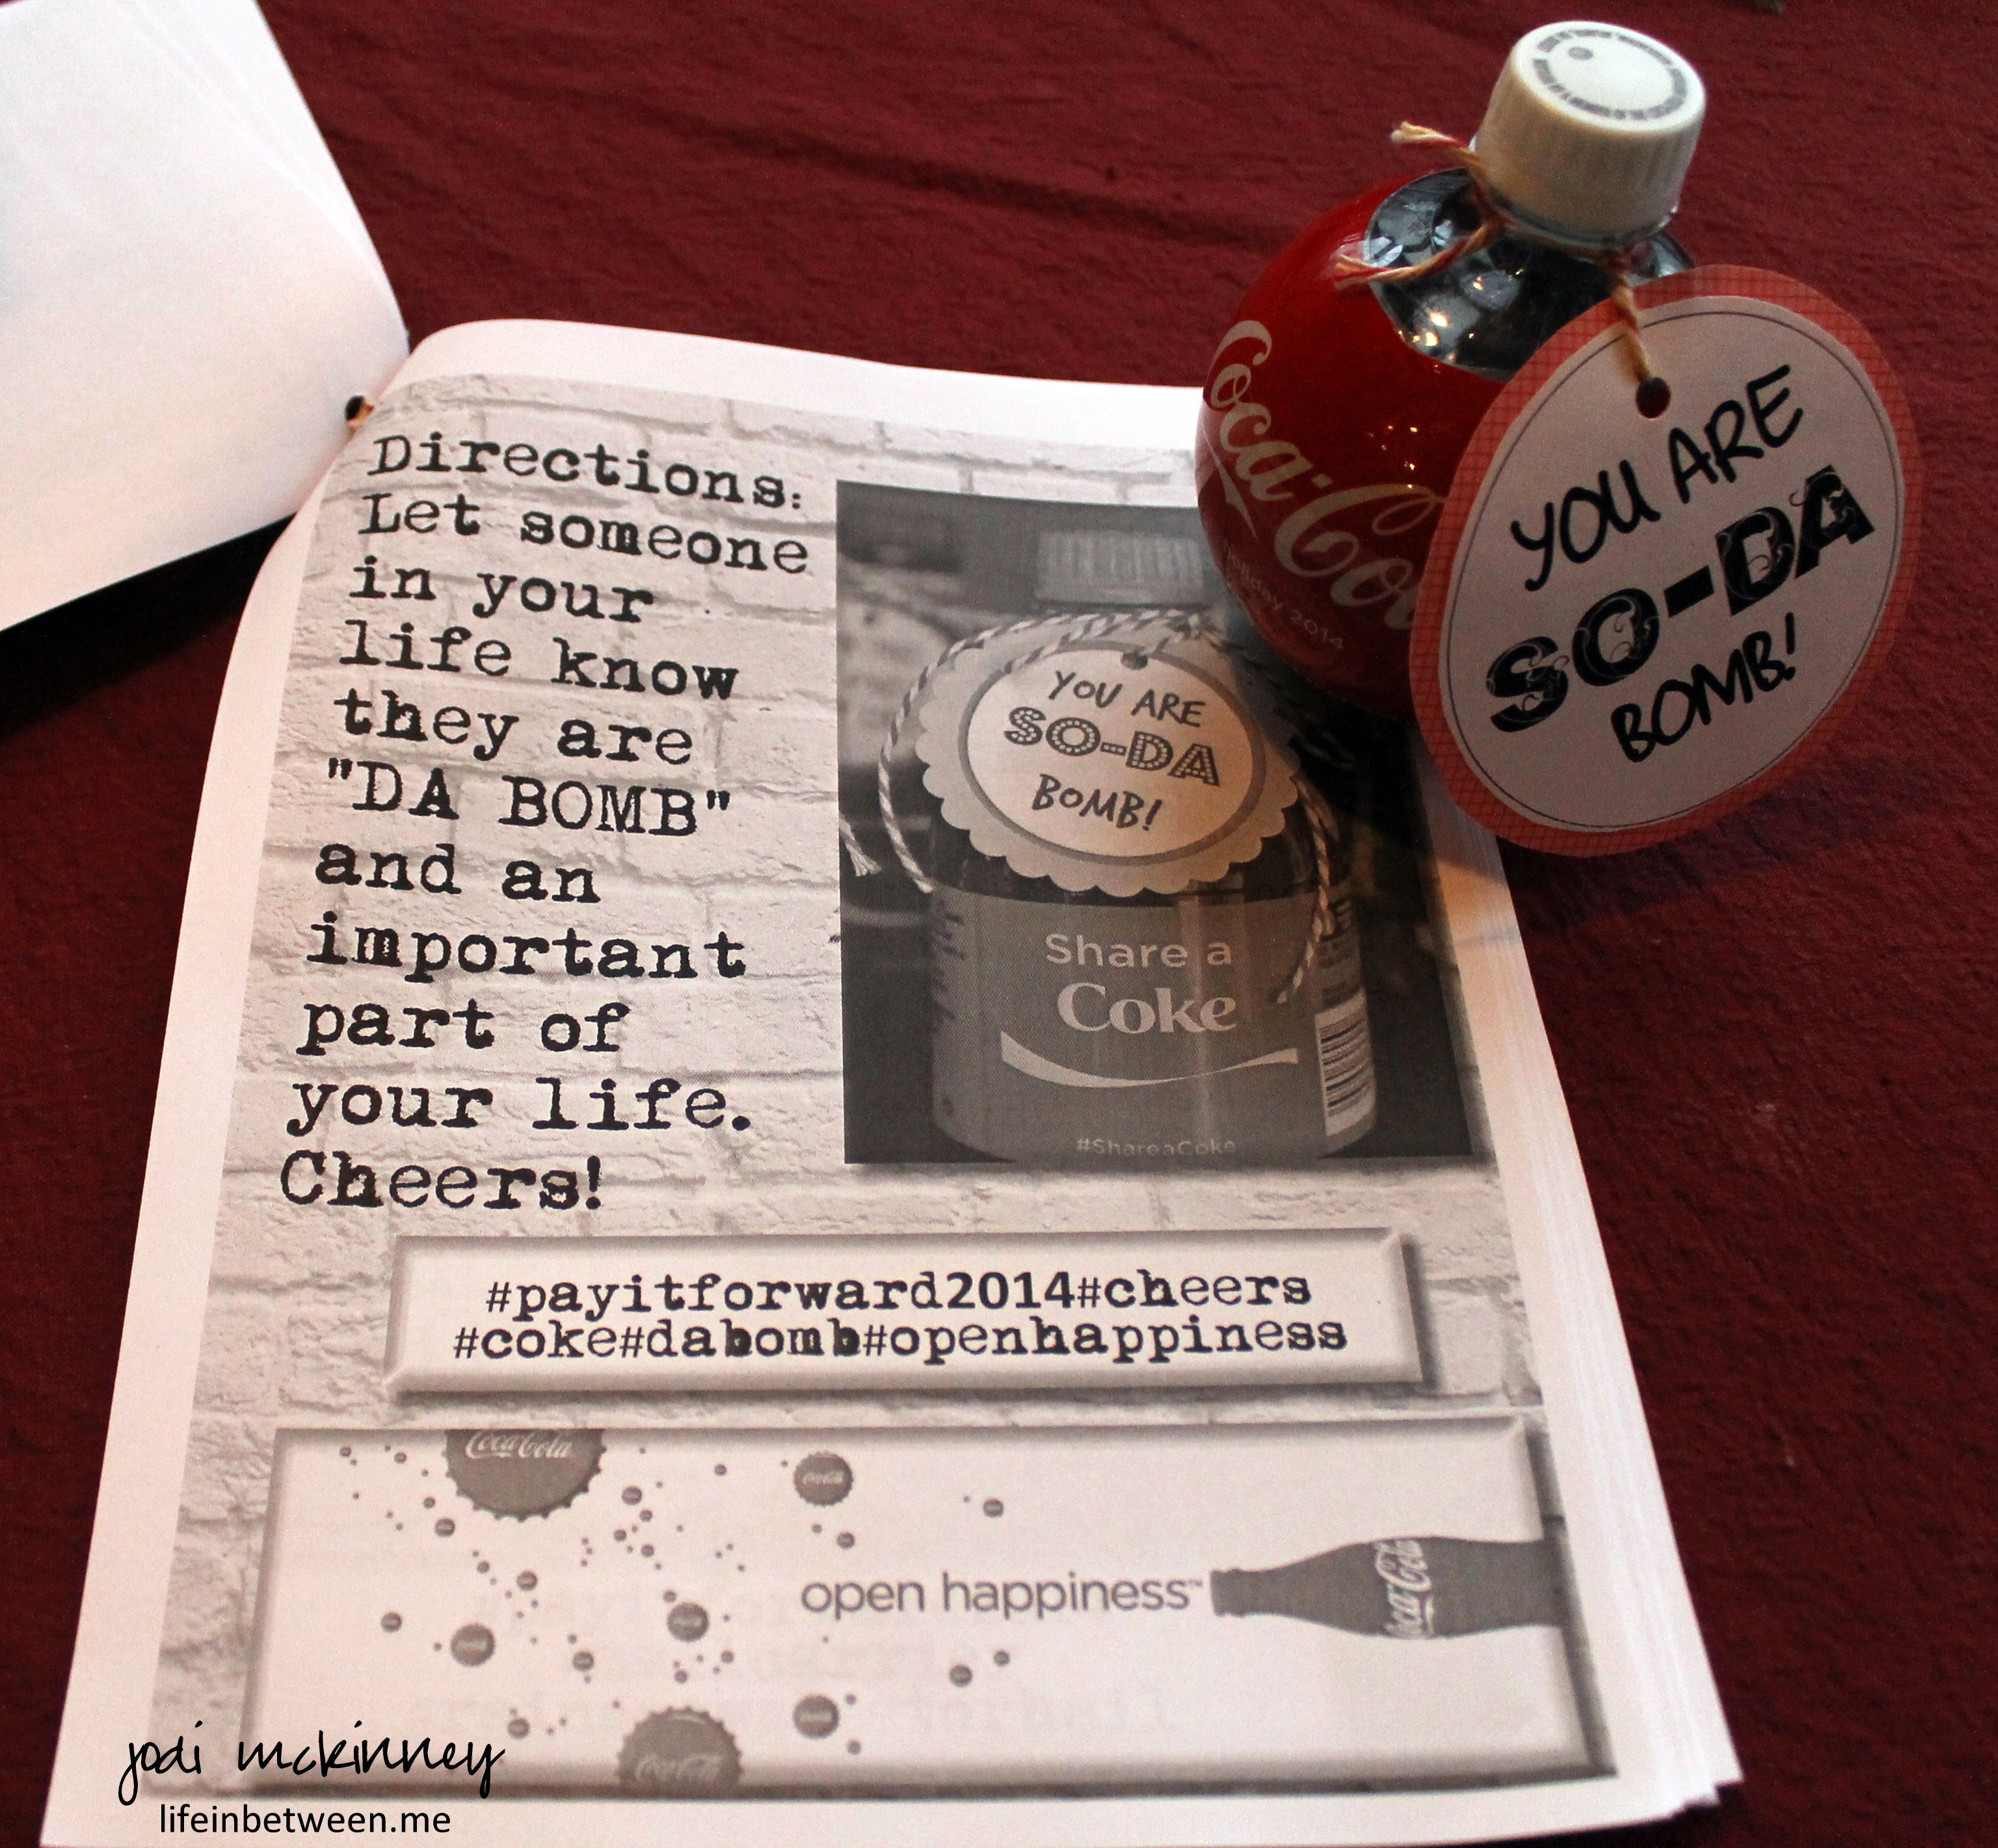 Directions:
Let someone
in your
life know
they are
"DA BOMB"
and an
important
part of
your life.
Cheers!
YOU ARE
SO-DA
BOMB!
Share a
Coke
#ShareaCoke
Coca-Co
holiday 2014
YOU ARE
SO-DA
BOMB!
#payitforward2014#cheers
#coke#dabomb#openhappiness
Coca-Cola
open happiness™
Coca-Cola
Coca-Cola
jodi mckinney
lifeinbetween.me